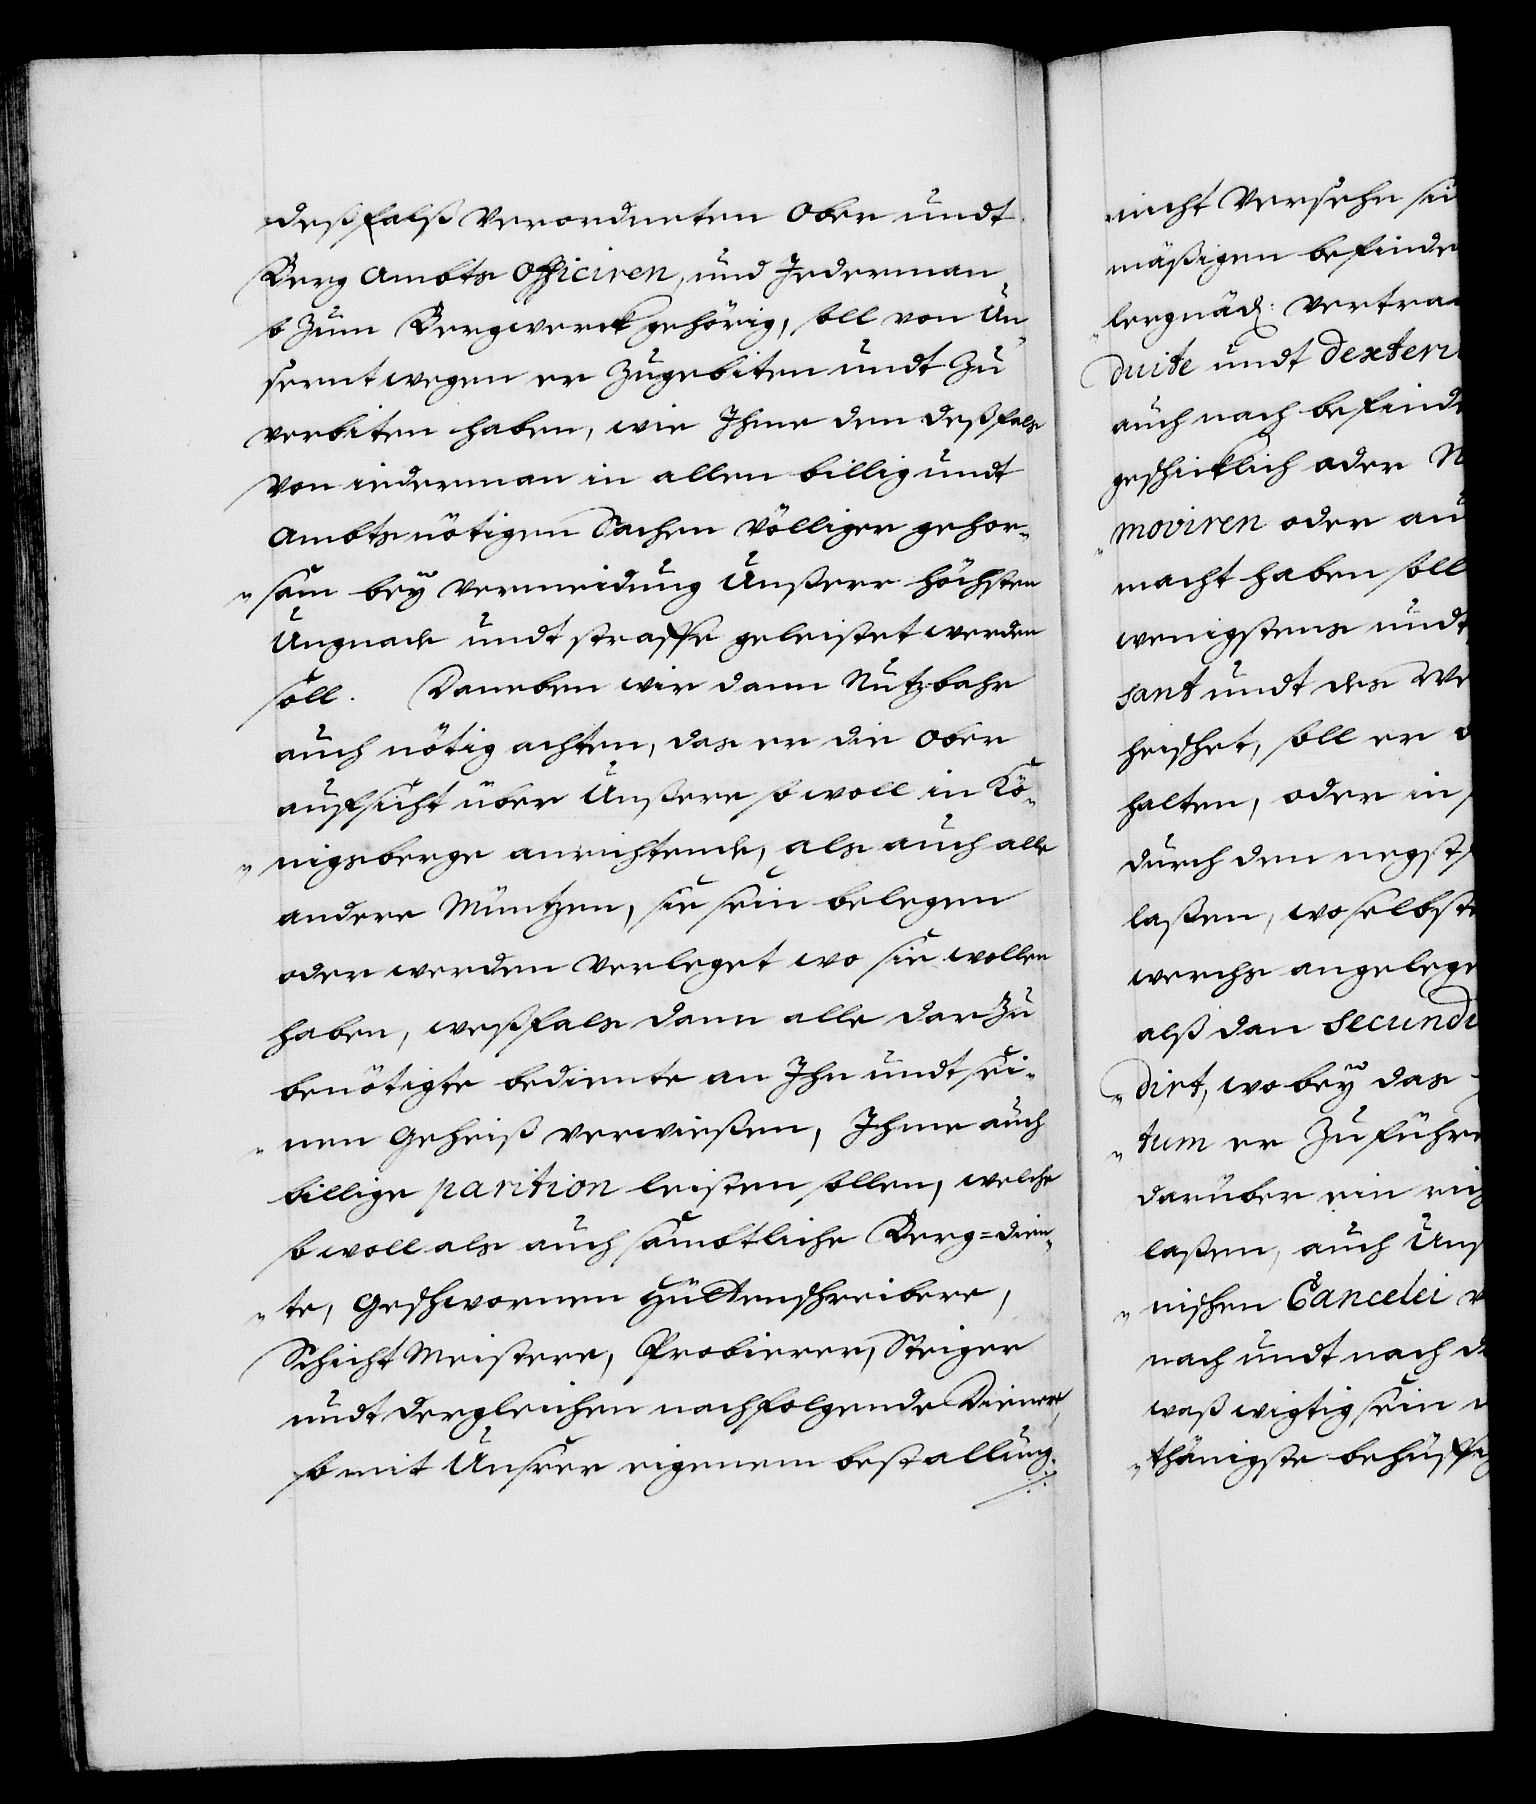 deßfalß Verordneten Ober undt
Berg Ambts Officiren, und Jederman
so zum Bergwerck gehörig, soll von Un„
serntwegen er zugebiten undt zu
verbiten haben, wie Ihme den deßfals
Von iederman in allen billig undt
Ambts nötigen Sachen völliger gehor„
„sam beÿ Vermeidung Unßerer höchsten
Ungnade undt straffe geleistet werden
soll. Daneben wir dann Nützbahr
auch nötig achten, das er die Ober
aufsicht über Unßere so woll in Kö„
„nigsberge anrichtende, als auch alle
andere Müntzen, sie sein belegen
oder werden Verleget wo sie wollen
haben, weßfals dann alle darzu
benötigte bediente an Ihn undt sei„
„nen Geheiß verwießen, Ihme auch
billige parition leisten sollen, welche
so woll als auch sämbtliche Berg=dien„
„te, Geschwornen Hüttenschreibere,
Schicht Meistere, Probierer, Steiger
undt dergleichen nachfolgende Dienere,
so mit Unsrer eigenem bestallung
nicht Versehn sei
mäßigen befinde
lergnäd: Vertra
duite undt dexteri
auch nach befind
geschicklich oder N
„moviren oder au
macht haben soll
wenigstens undt
sant undt des We
heischet, soll er d
halten, oder in
durch den negst
laßen, woselbste
werchs angelege
alß dan Secundi
„dirt, wobeÿ das
„tum er zu führe
darüber ein rich
laßen, auch Uns
„nischen Cancelei v
nach undt nach d
waß wigtig sein
„thänigste behuffe